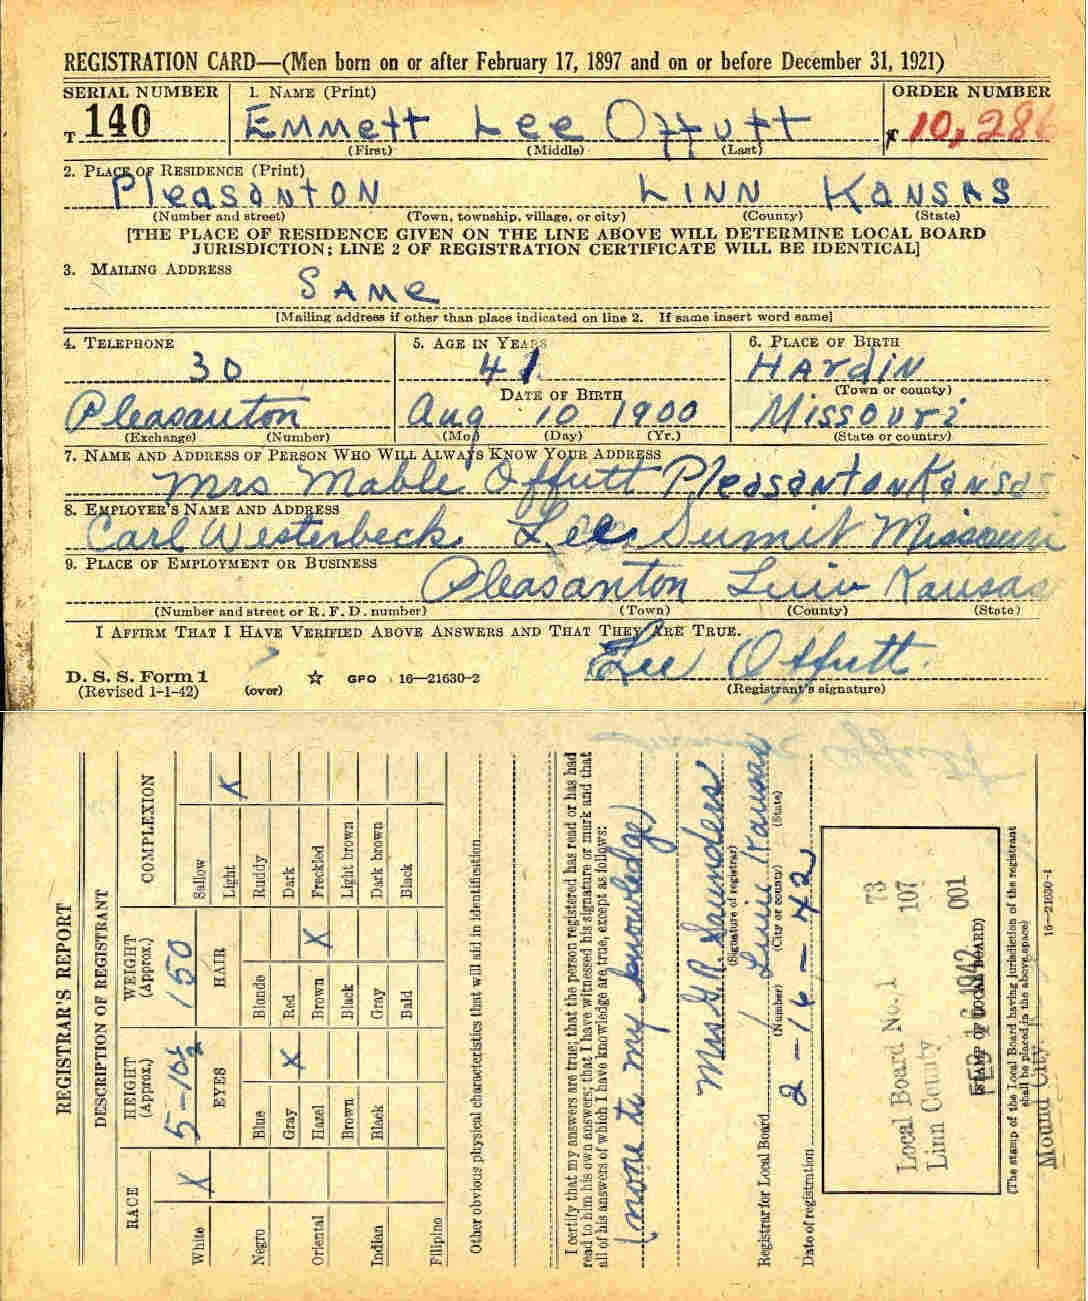 REGISTRATION CARD—(Men born on or after February 17, 1897 and on or before December 31, 1921)
SERIAL NUMBER 1. NAME (Print) ORDER NUMBER
T 140 Emmett Lee Offutt T 10,286
(First) (Middle) (Last)
2. PLACE OF RESIDENCE (Print)
Pleasanton Linn Kansas
(Number and street) (Town, township, village, or city) (County) (State)
[THE PLACE OF RESIDENCE GIVEN ON THE LINE ABOVE WILL DETERMINE LOCAL BOARD
JURISDICTION; LINE 2 OF REGISTRATION CERTIFICATE WILL BE IDENTICAL]
3. MAILING ADDRESS
Same
[Mailing address if other than place indicated on line 2. If same insert word same]
4. TELEPHONE 5. AGE IN YEARS 6. PLACE OF BIRTH
30 41 Hardin
DATE OF BIRTH (Town or county)
Pleasanton Aug 10 1900 Missouri
(Exchange) (Number) (Mo.) (Day) (Yr.) (State or country)
7. NAME AND ADDRESS OF PERSON WHO WILL ALWAYS KNOW YOUR ADDRESS
Mrs Mable Offutt Pleasanton Kansas
8. EMPLOYER'S NAME AND ADDRESS
Carl Westerbeck Lee Sumit Missouri
9. PLACE OF EMPLOYMENT OR BUSINESS
Pleasanton Linn Kansas
(Number and street or R. F. D. number) (Town) (County) (State)
I AFFIRM THAT I HAVE VERIFIED ABOVE ANSWERS AND THAT THEY ARE TRUE.
Lee Offutt
D. S. S. Form 1
(Revised 1-1-42) (over) ☆ GPO 16—21630-2 (Registrant's signature)
REGISTRAR'S REPORT
DESCRIPTION OF REGISTRANT
RACE HEIGHT (Approx.) WEIGHT (Approx.) COMPLEXION
White X 5-10½ 150 Sallow
EYES HAIR Light X
Negro Blue Blonde Ruddy
Gray X Red Dark
Oriental Hazel Brown X Freckled
Brown Black Light brown
Indian Black Gray Dark brown
Filipino Bald Black
Other obvious physical characteristics that will aid in identification
I certify that my answers are true; that the person registered has read or has had
read to him his own answers; that I have witnessed his signature or mark and that
all of his answers of which I have knowledge are true, except as follows:
(none to my knowledge)
Mrs G.R. Saunders
(Signature of registrar)
Registrar for Local Board 1 Linn Kansas
(Number) (City or county) (State)
Date of registration 2-16-42
Local Board No. 1 73
Linn County 107
FEB 16 1942 001
(STAMP OF LOCAL BOARD)
(The stamp of the Local Board having jurisdiction of the registrant
shall be placed in the above space)
Mound City,
16—21630-1